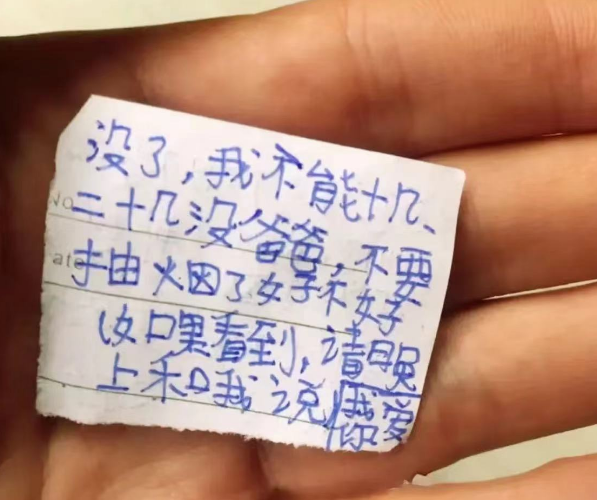 没了，我不能十几、
二十几没爸爸，不要
抽烟了好不好
如果看到，请晚
上和我说我爱
你